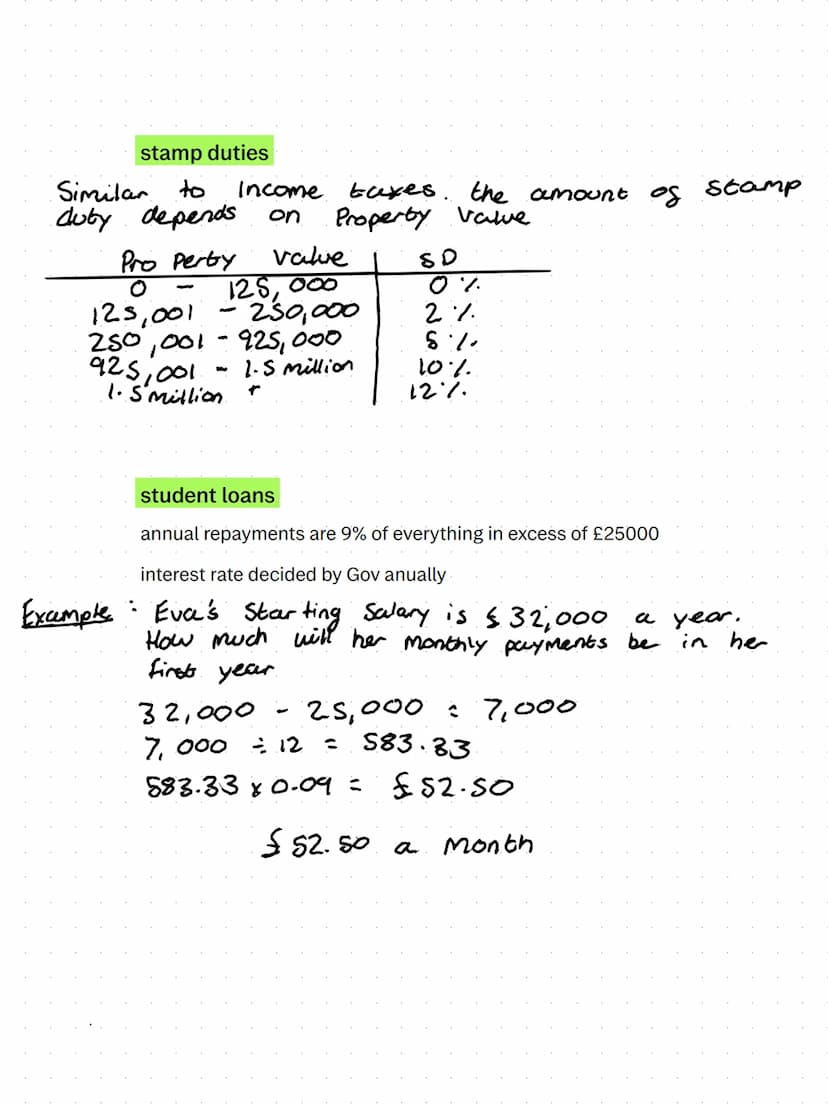 stamp duties
Similar to Income taxes. the amount of stamp
duty depends on Property value
Property value SD
0 - 125,000 0%
125,001 - 250,000 2%
250,001 - 925,000 5%
925,001 - 1.5 million 10%
1.5 million + 12%
student loans
annual repayments are 9% of everything in excess of £25000
interest rate decided by Gov anually
Example : Eva's Starting Salary is £32,000 a year.
How much will her monthly payments be in her
first year
32,000 - 25,000 = 7,000
7,000 ÷ 12 = 583.33
583.33 x 0.09 = £52.50
£52.50 a month